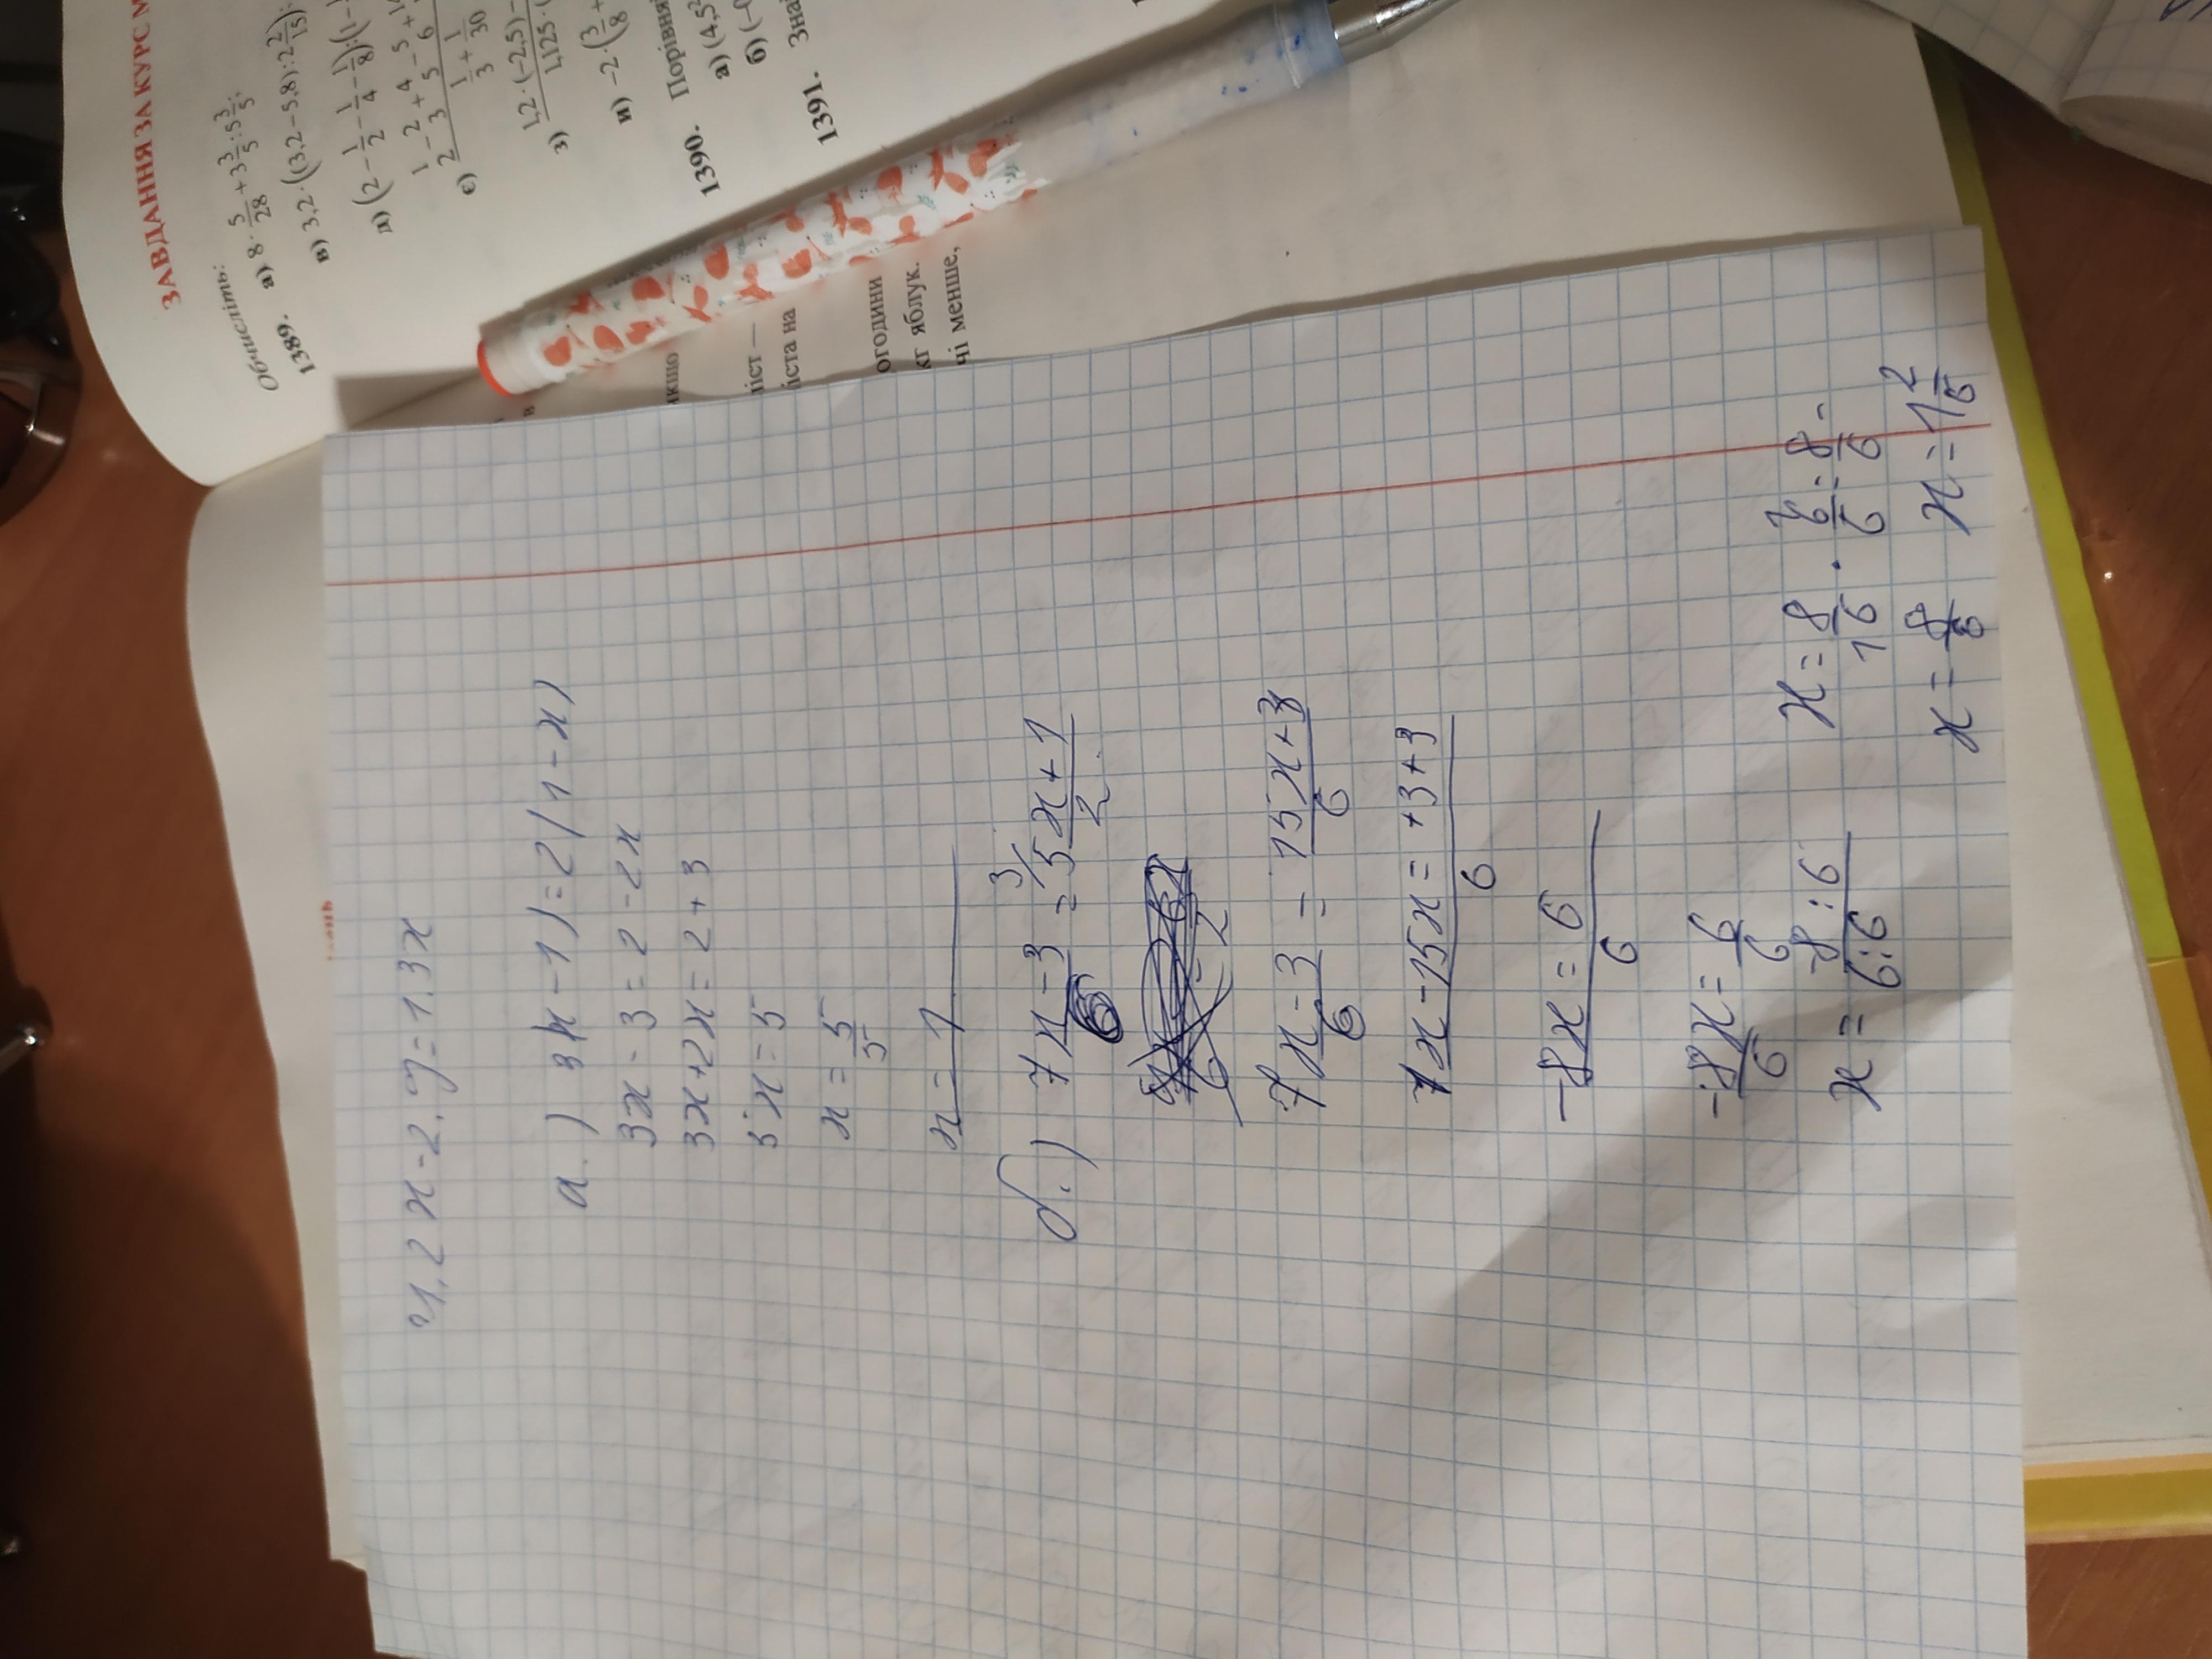 ЗАВДАННЯ ЗА КУРС М
Обчисліть:
1389. а) 8 · 5/28 + 3 3/5 : 5 3/5;
в) 3,2 · ((3,2 − 5,8) : 2 2/15);
д) (2 − 1/2 − 1/4 − 1/8) : (1 −
є) 1/2 − 2/3 + 4/5 − 5/6 +
1/3 + 1/30
з) 1,2 · (−2,5) −
1,125 ·
и) −2 · (3/8 +
1390. Порівня
а) (4,5
б) (−
1391. Зна
в
якщо
міст —
іста на
огодини
кг яблук.
чі менше,
1,2 x - 2. y = 1.3x
а.) 3(x - 1) = 2(1 - x)
3x - 3 = 2 - 2x
3x + 2x = 2 + 3
5x = 5
x = 5/5
x = 1
б.) 7x - 3/6 = 3/ 5x + 1/2
7x - 3/6 = 15x + 3/6
7x - 15x = + 3 + 3/6
-8x = 6/6
-8x/6 = 6/6
x = -8 : 6/6 : 6
x = 8/16 · 6/6 = 8/6 =
x = 8/6 x = 1 2/6